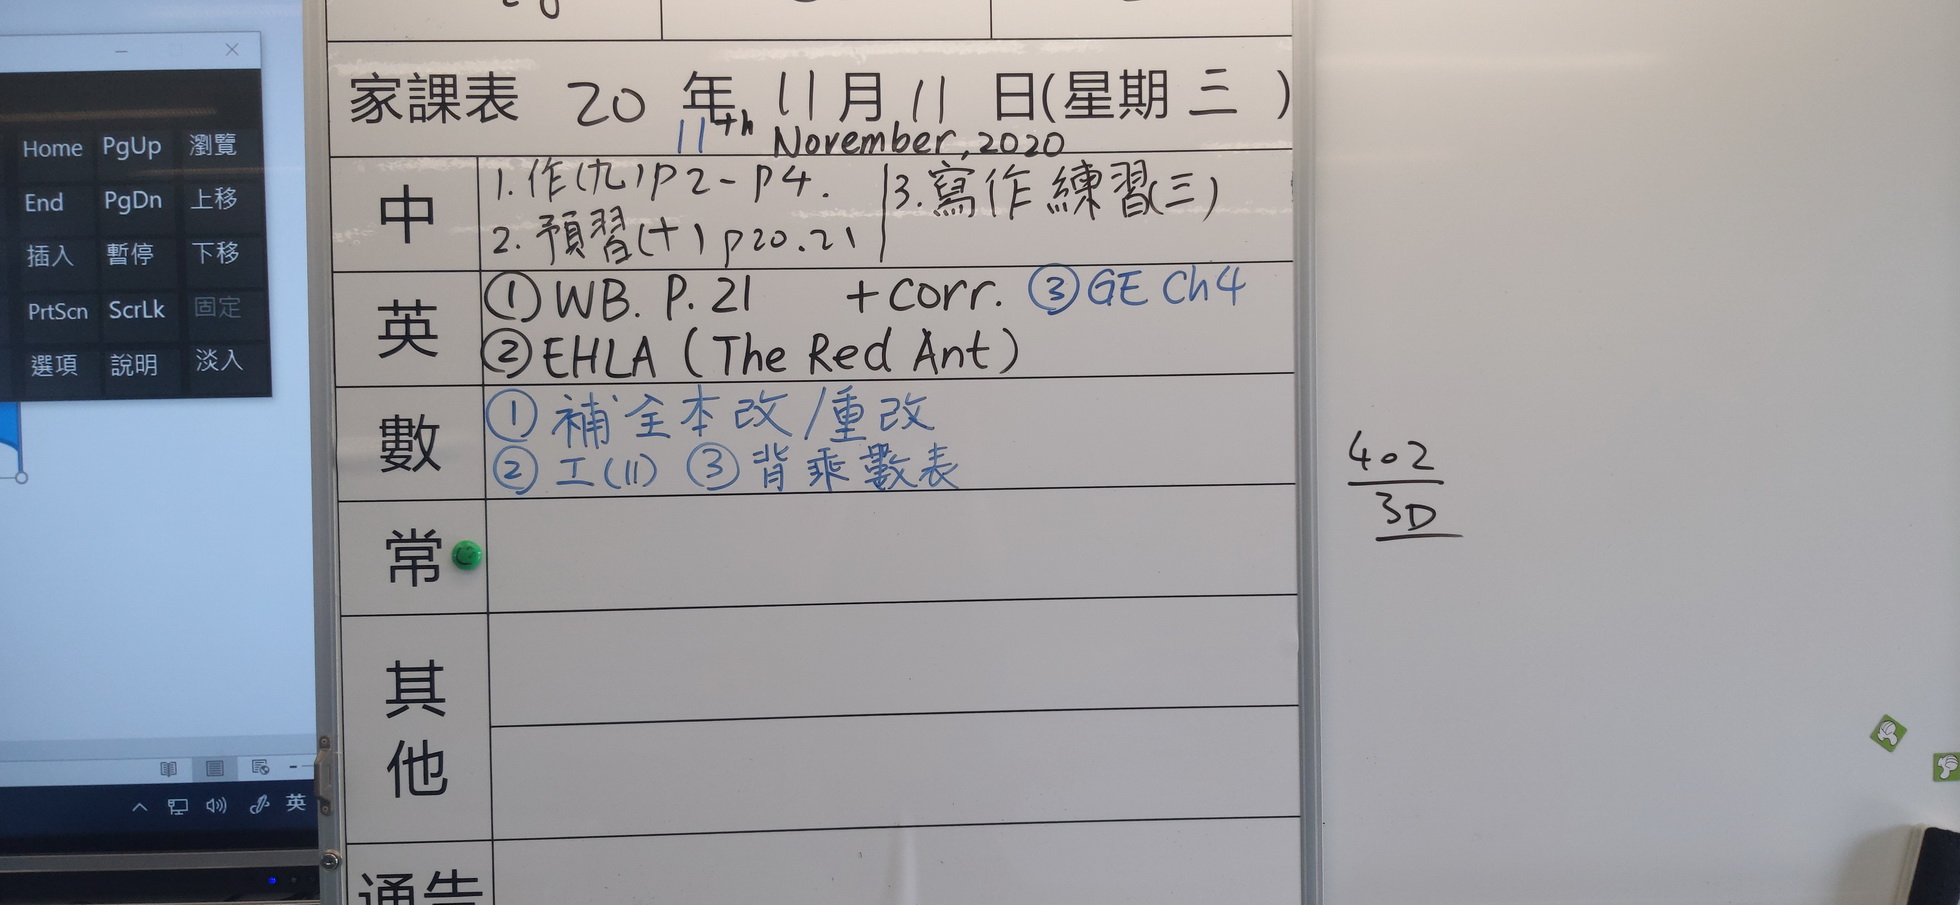 Home PgUp 瀏覽
End PgDn 上移
插入 暫停 下移
PrtScn ScrLk 固定
選項 說明 淡入
英
家課表 20 年 11 月 11 日(星期 三 )
11th November, 2020
中
1. 作(九) P2-P4.
2. 預習(十) P20.21
3. 寫作練習(三)
英
① WB. P. 21 + corr. ③ GE Ch4
② EHLA (The Red Ant)
數
① 補全本改/重改
② 工(11) ③ 背乘數表
常
其他
通告
402
3D